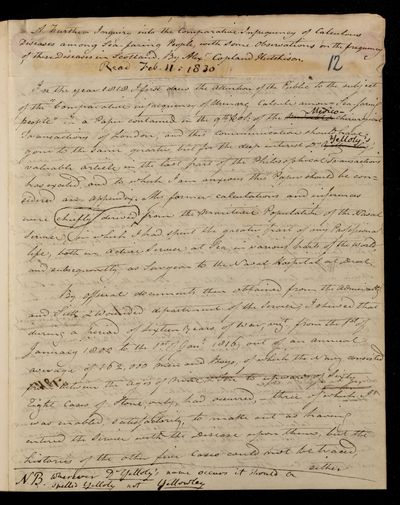 A Further Inquiry into the Comparative Infrequency of Calculous
Diseases among Sea-faring People, with Some Observations on the frequency
of these Diseases in Scotland. By Alex Copland Hutchison
Read Feb. 11. 1830
12
In the year 1818 I first drew the attention of the Public to the subject
of the "Comparative infrequency of Urinary Calculi among Sea-faring
People" in a Paper contained in the 9th Vol: of the Medico Chirurgical
Transactions of London, and this communication should have
gone to the same quarter, but for the deep interest Dr Yelloly's
valuable article in the last part of the Philosophical Transactions
has excited, and to which I am anxious this Paper should be con-
sidered an appendix. My former calculations and inferences
were chiefly derived from the Maritime Population of the Naval
Service (in which I had spent the greater part of my Professional
life, both on active Service at Sea in various parts of the World
and subsequently, as Surgeon to the Naval Hospital at Deal.
By official documents then obtained from the Admiralty
and Sick & Wounded department of the Service, I shewed that
during a period of Sixteen Years of War, viz, from the 1st of
January 1800 to the 1st of Jany 1816, out of an annual
average of 132,000 men and Boys, of which the Navy consisted
from the ages of to upwards of Sixty
Eight Cases of Stone, only, had occurred, three of which I
was enabled, satisfactorily, to make out as having
entered the Service with the disease upon them, but the
histories of the other five Cases could not be traced,
either
N.B. Wherever Dr Yelloly's name occurs it should be
spelled Yelloly not Yellowley